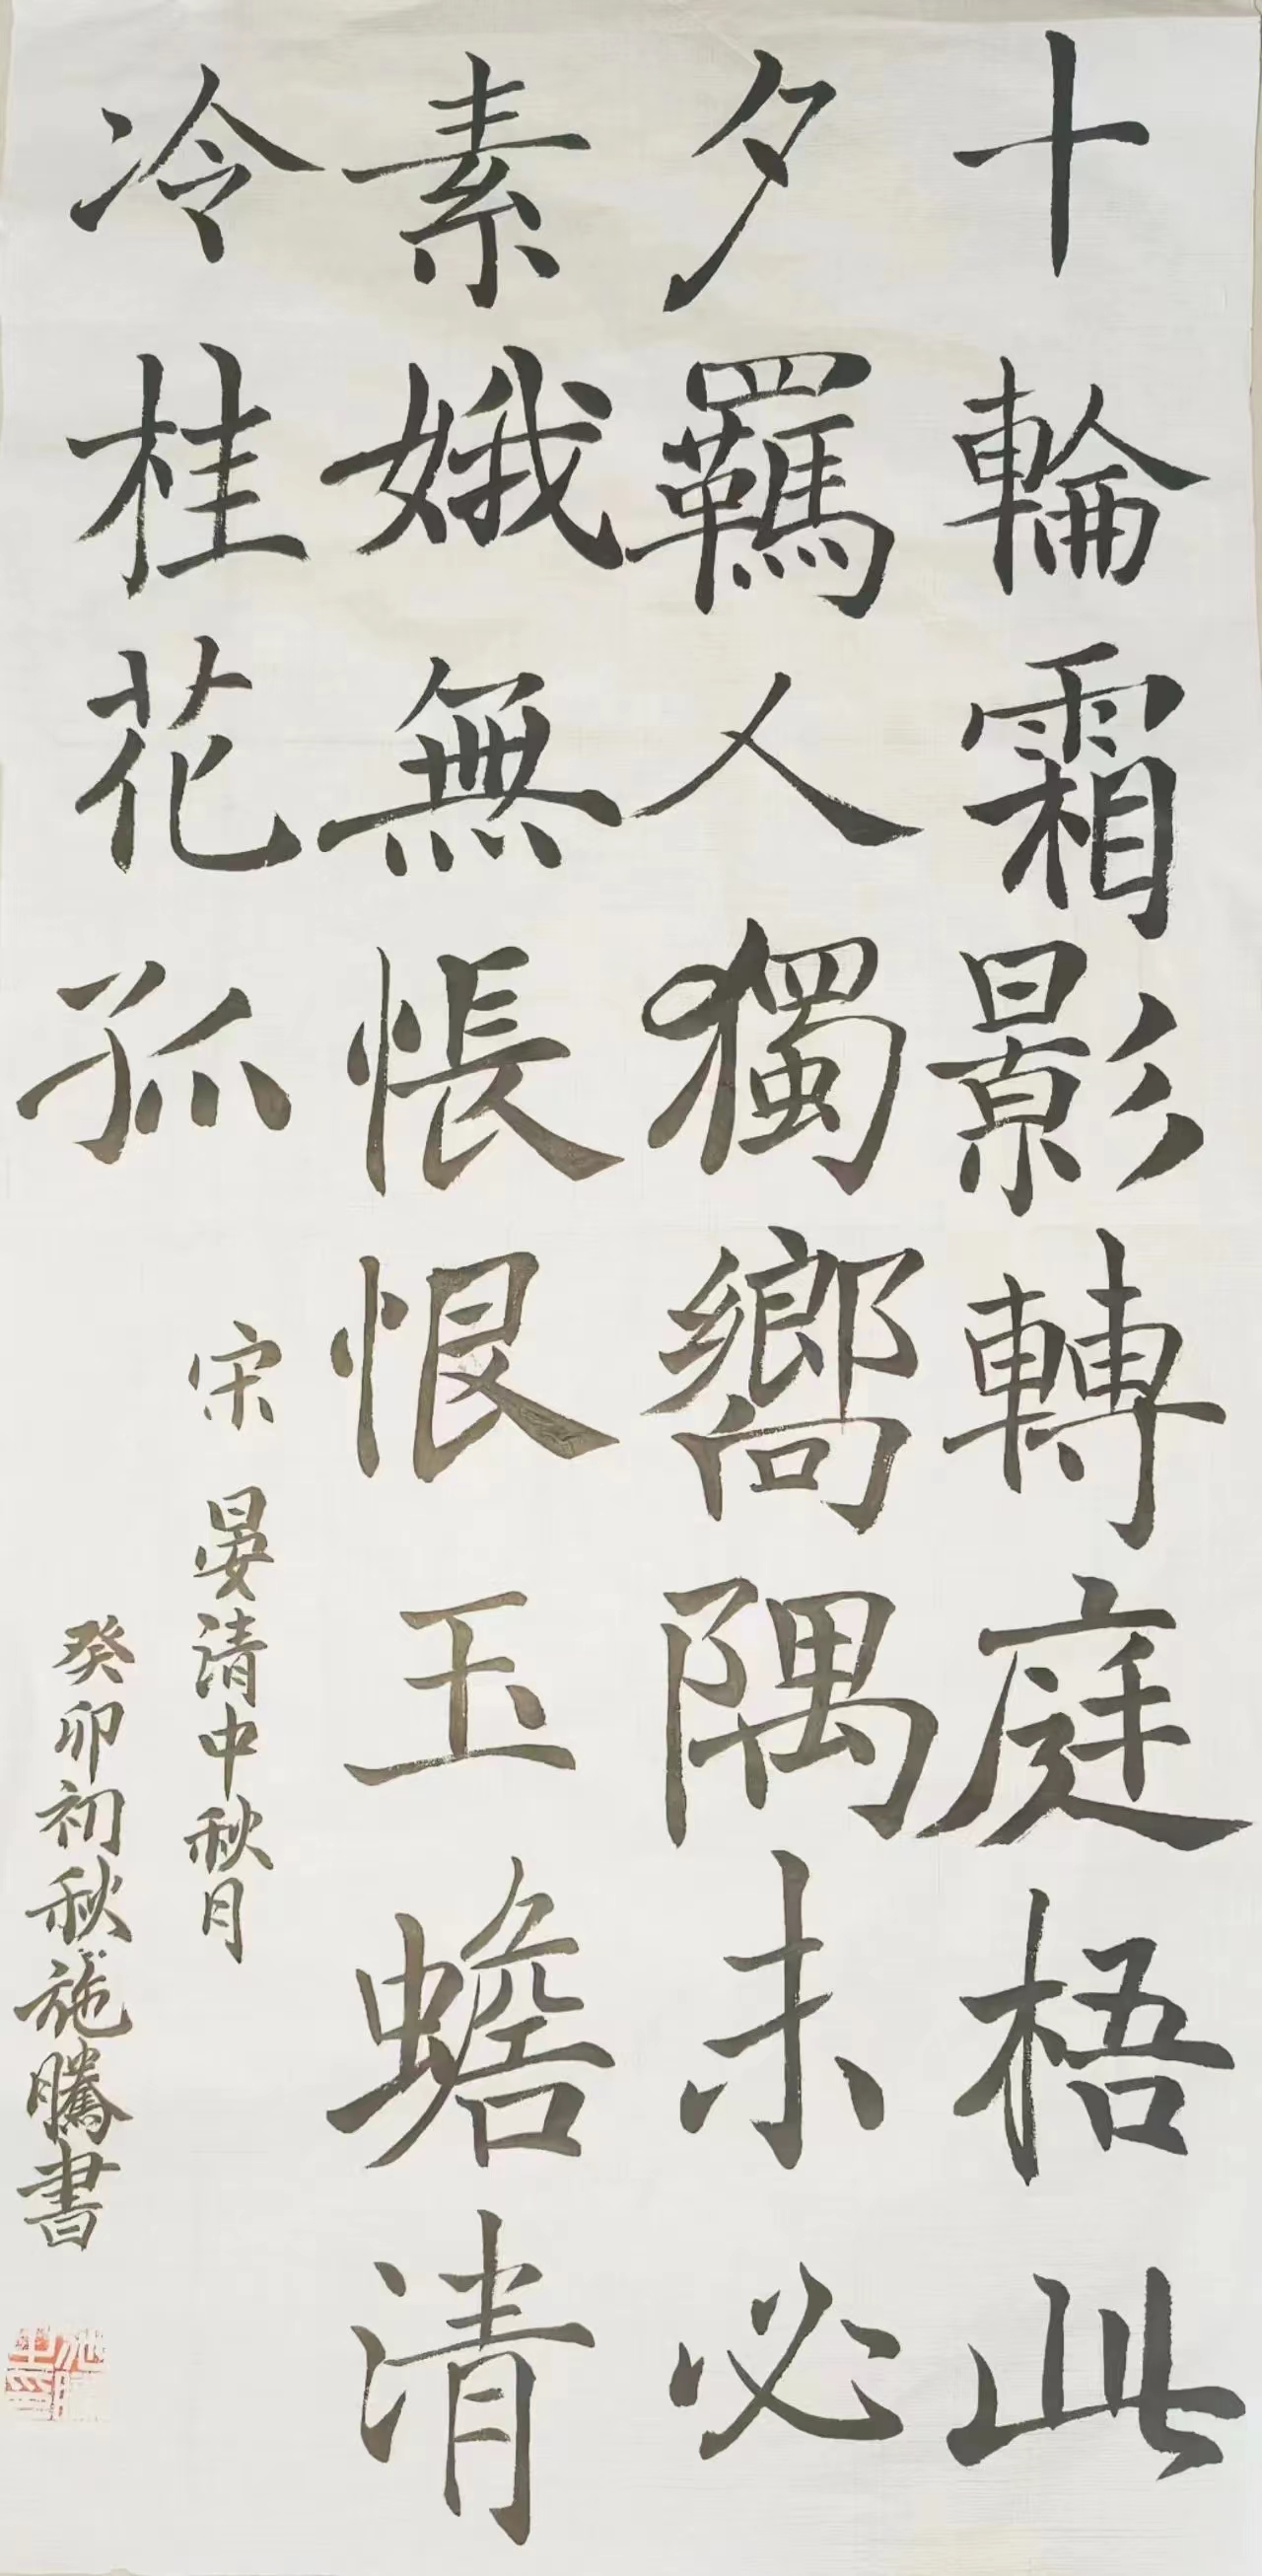 十輪霜影轉庭梧此
夕羈人獨嚮隅未必
素娥無悵恨玉蟾清
冷桂花孤
宋 晏清中秋月
癸卯初秋施騰書